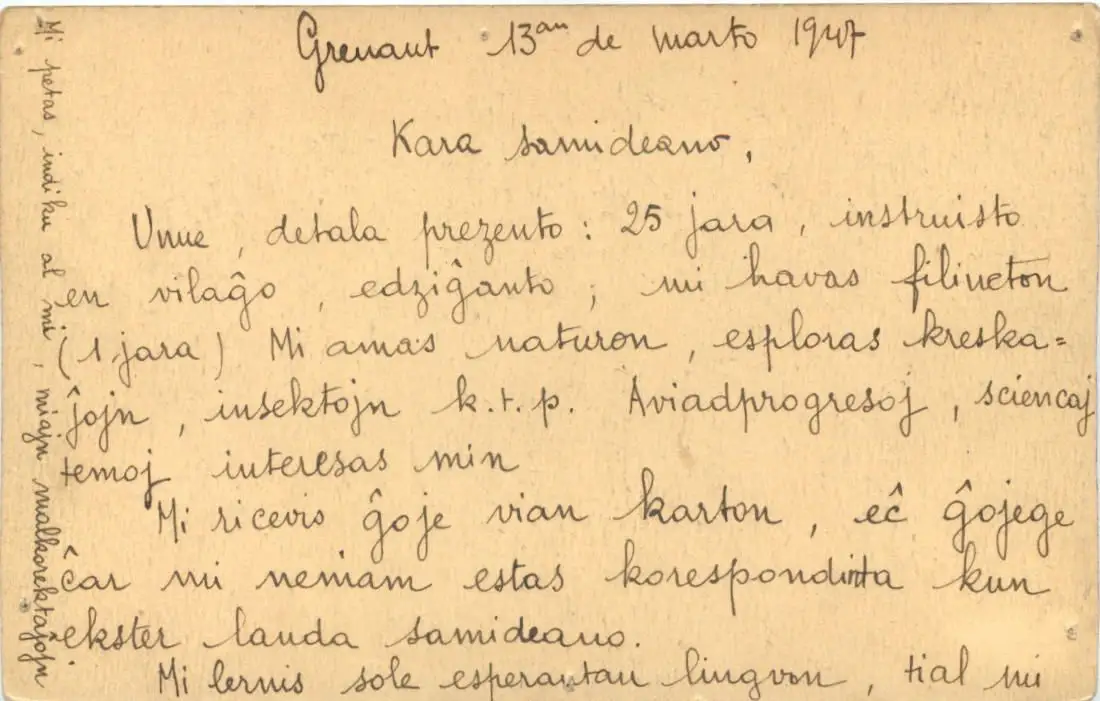 Grenaut 13an de marto 1947
Kara samideano,
Unue, detala prezento : 25 jara, instruisto
en vilaĝo, edziĝanto ; mi havas filineton
(1 jara) Mi amas naturon, esploras kreska=
ĵojn, insektojn k.t.p. Aviadprogresoj, sciencaj
temoj interesas min
Mi ricevis ĝoje vian karton, eĉ ĝojege
ĉar mi neniam estas korespondinta kun
ekster landa samideano.
Mi lernis sole esperantan lingvon, tial mi
Mi petas, indiku al mi, miajn malkorektaĵojn